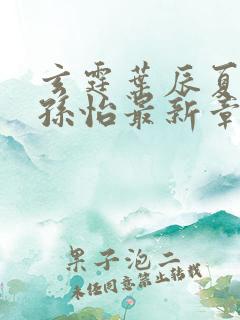 玄霆葉辰夏
孫怡最新章
果子泡二
未经同意禁止转载